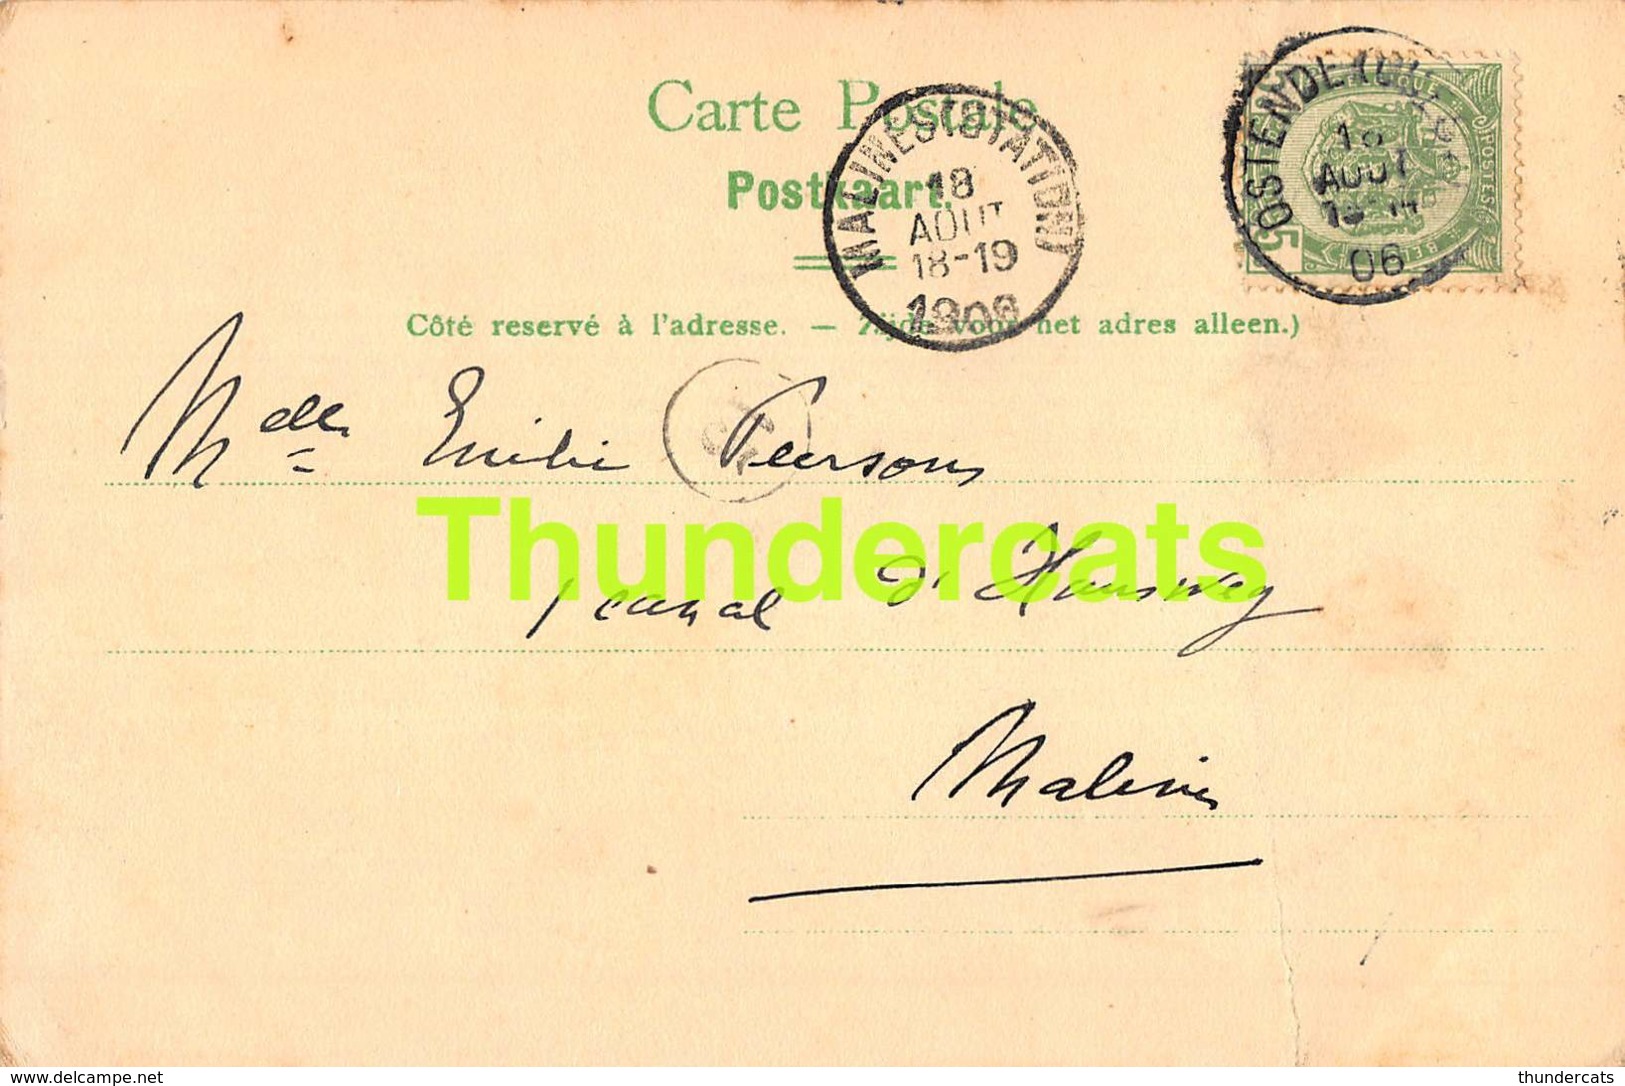 Carte Postale
Postkaart.
MALINES (STATION)
18
AOUT
18-19
1906
OSTENDE
18
AOUT
06
POSTES
5
Côté reservé à l'adresse. — Zijde voor het adres alleen.)
Melle Emilie Peersons
Thundercats
canal d'Hanswey
Malines
www.delcampe.net
thundercats